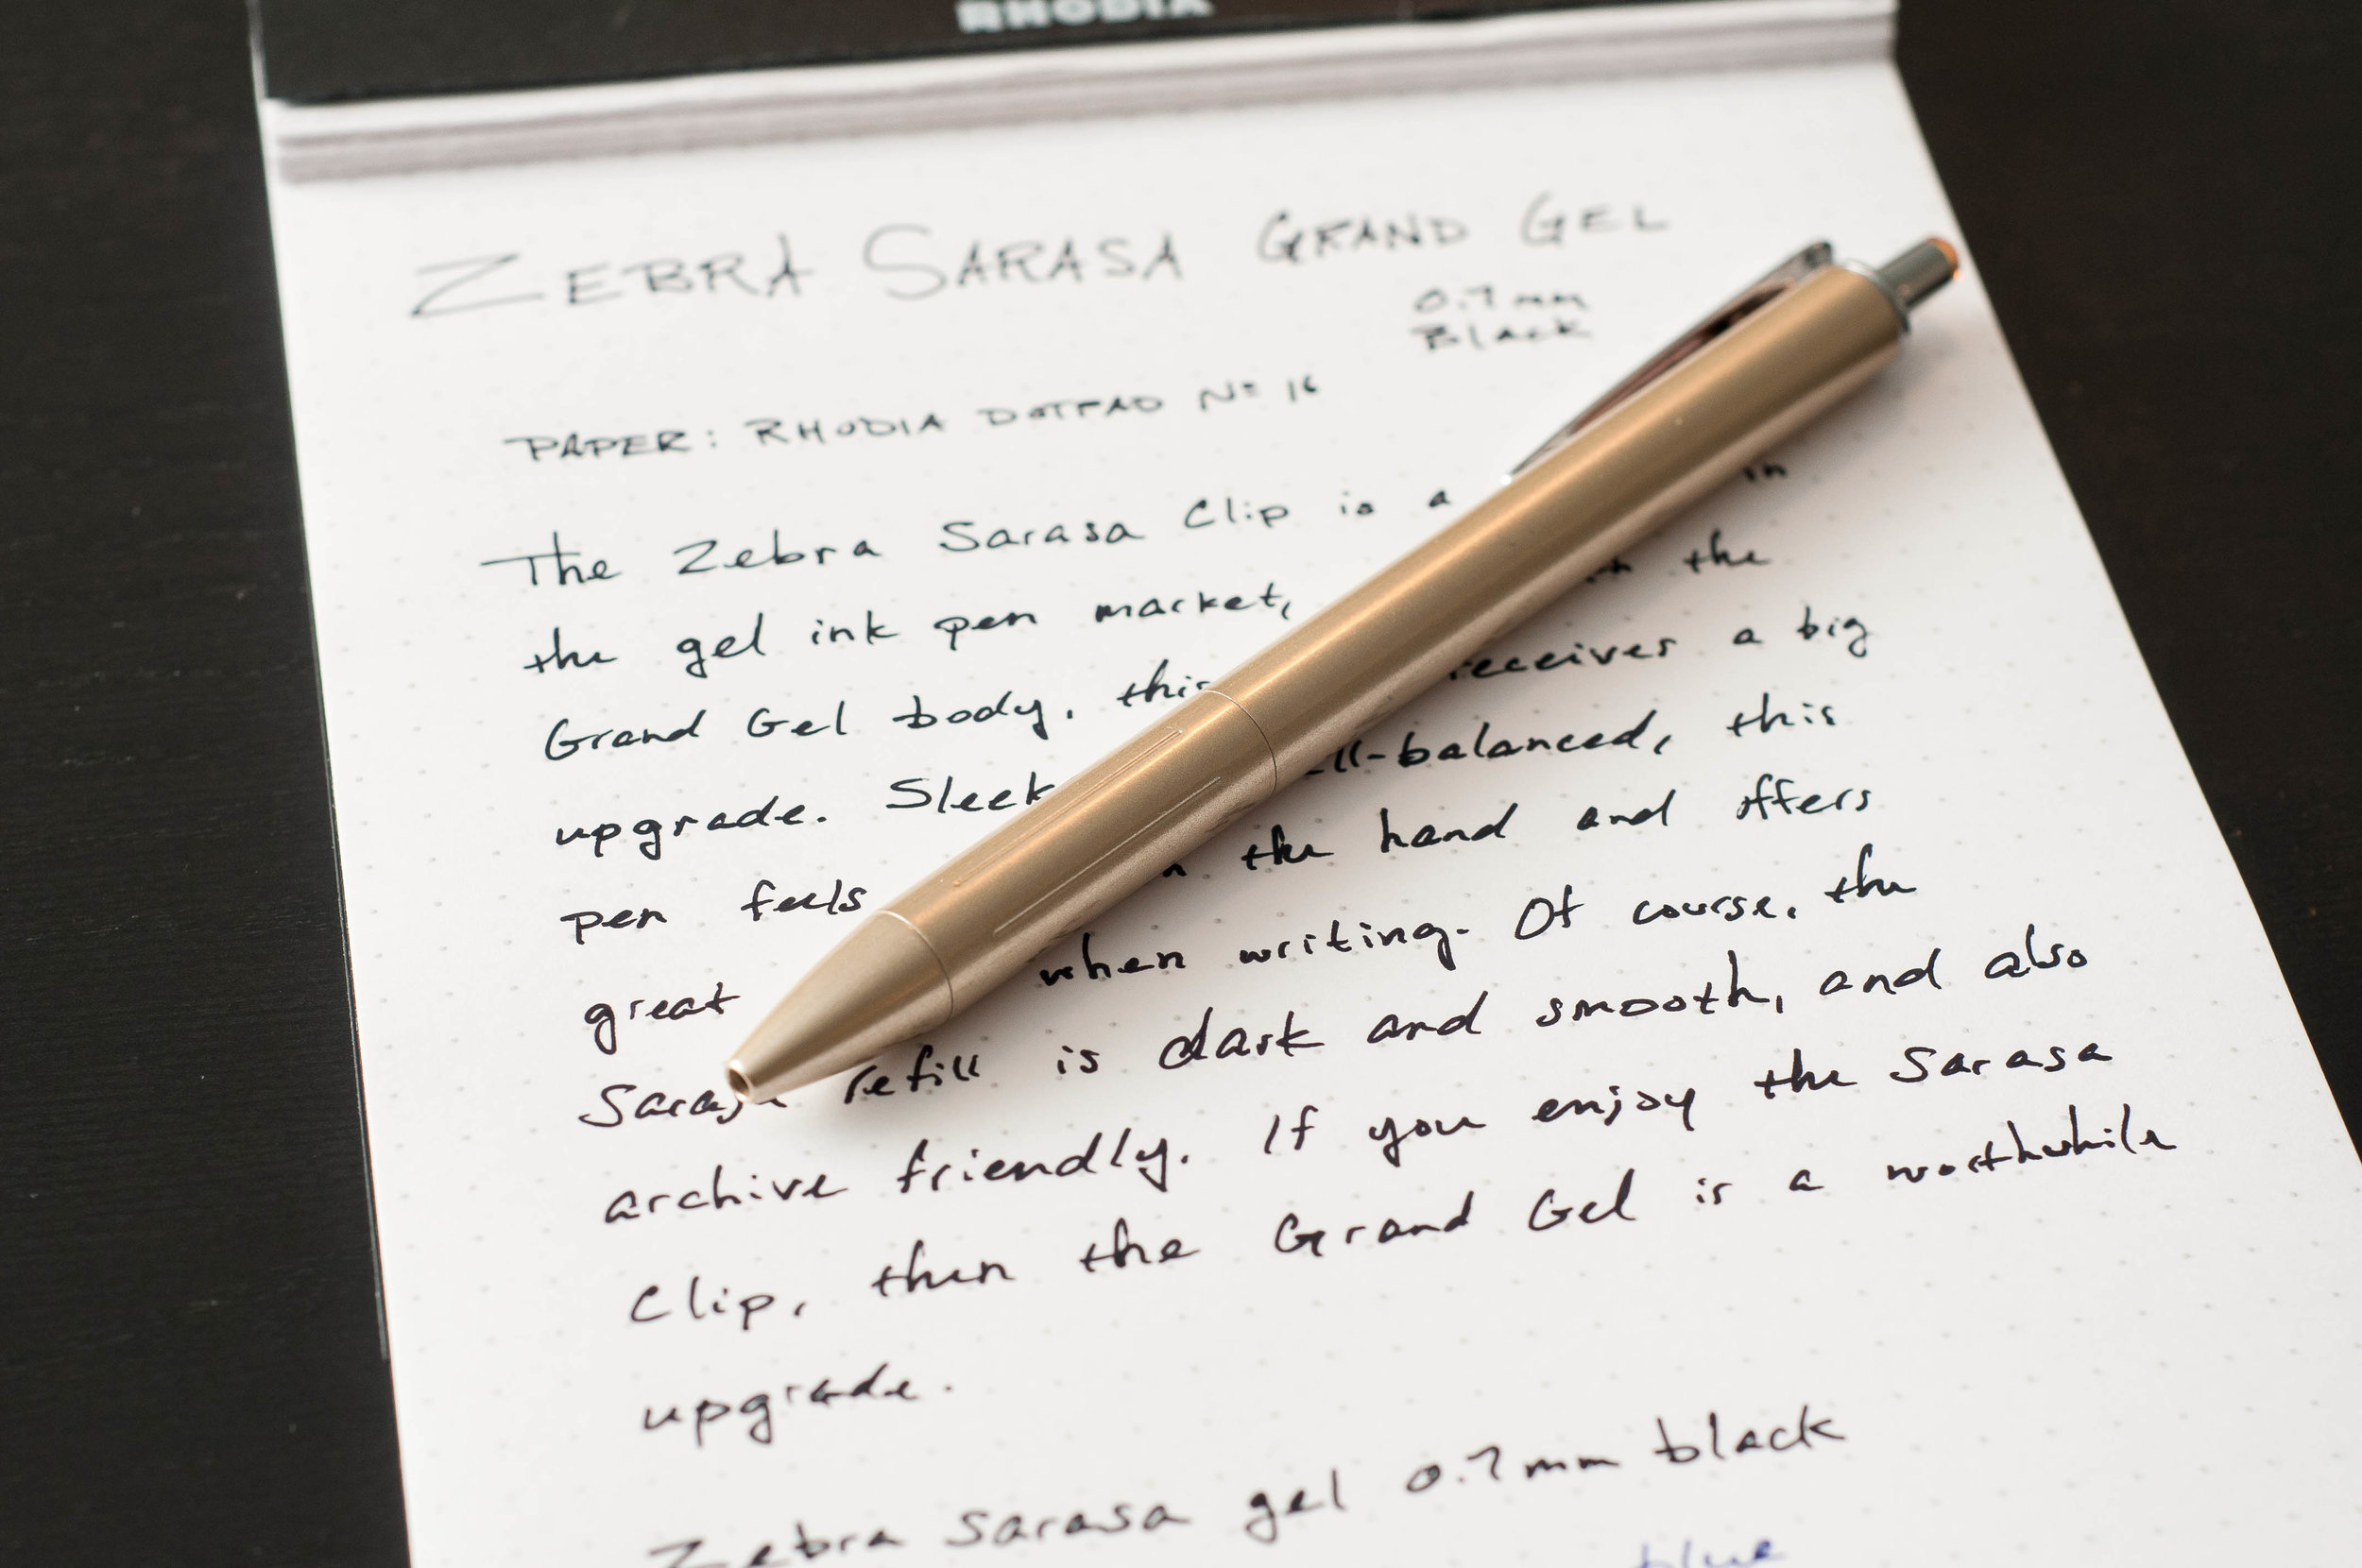 RHODIA
ZEBRA SARASA GRAND GEL
0.7 mm
Black
PAPER: RHODIA DOTPAD Nº 16
The Zebra Sarasa Clip is a in
the gel ink pen market, the
Grand Gel body, this receives a big
upgrade. Sleek -balanced, this
pen feels the hand and offers
great when writing. Of course, the
Sarasa refill is dark and smooth, and also
archive friendly. If you enjoy the Sarasa
Clip, then the Grand Gel is a worthwhile
upgrade.
Zebra Sarasa gel 0.7mm black
blue